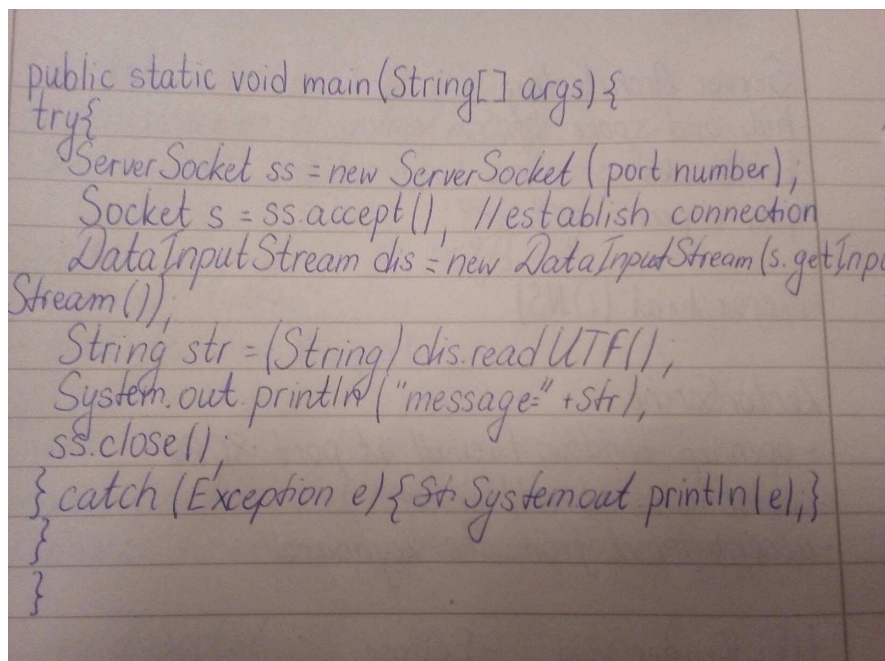 public static void main(String[] args){
try{
ServerSocket ss = new ServerSocket (port number);
Socket s = ss.accept(); //establish connection
DataInputStream dis = new DataInputStream(s.getInpu
Stream());
String str = (String) dis.readUTF();
System.out.println("message=" +str);
ss.close();
} catch (Exception e){ System.out println(e);}
}
}